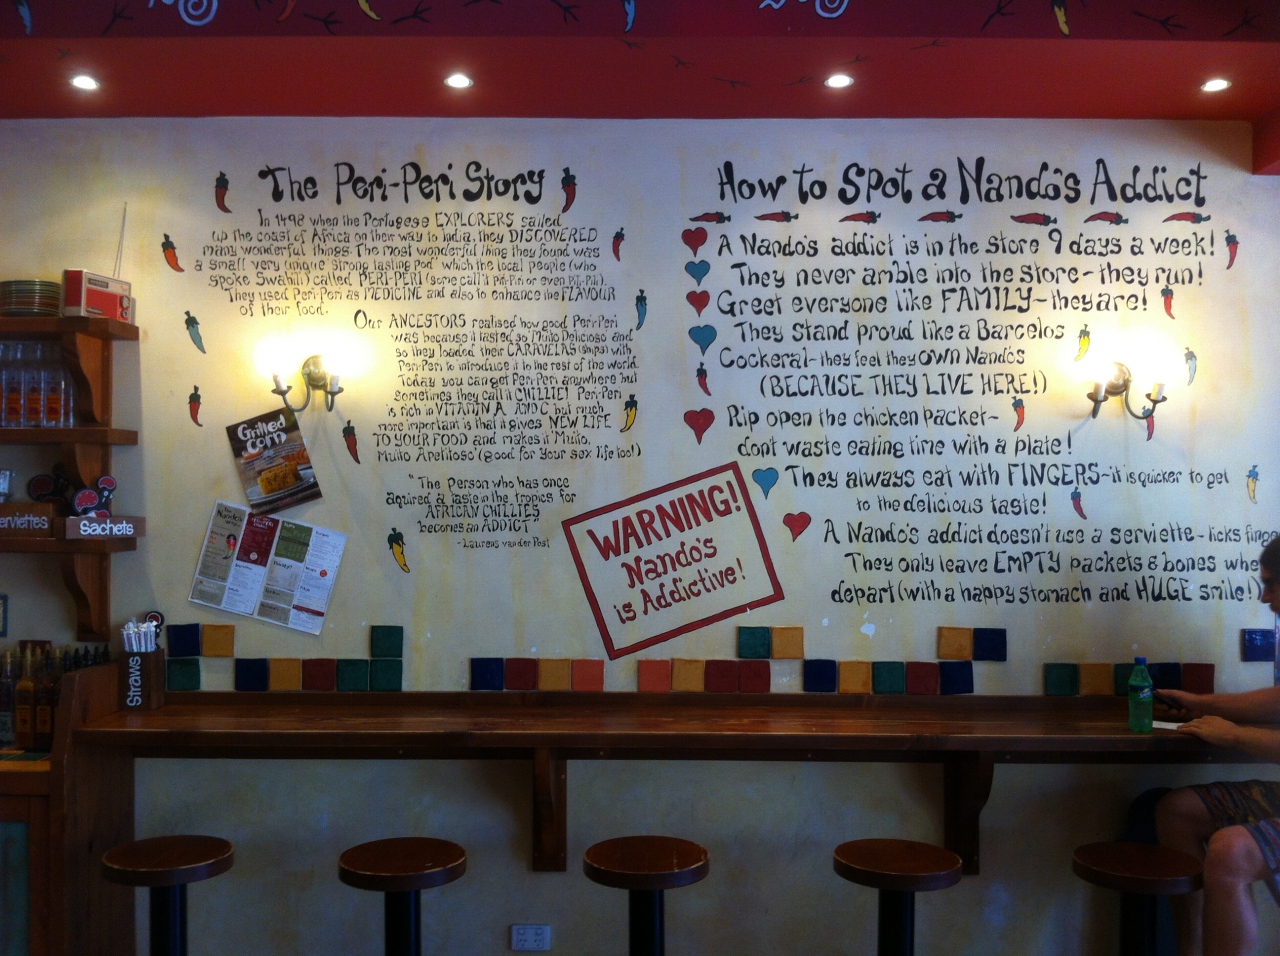 The Peri-Peri Story
In 1498 when the Portugese EXPLORERS sailed
up the coast of Africa on their way to India, they DISCOVERED
many wonderful things. The most wonderful thing they found was
a small very unique strong tasting Pod which the local people (who
spoke Swahili) called PERI-PERI (some call it Piri-Piri or even Pili-Pili).
They used Peri-Peri as MEDICINE and also to enhance the FLAVOUR
of their food.
Our ANCESTORS realised how good Peri-Peri
was because it tasted so Muito Delicioso and
so they loaded their CARAVELAS (ships) with
Peri-Peri to introduce it to the rest of the world.
Today you can get Peri-Peri anywhere but
Sometimes they call it CHILLIE! Peri-Peri
is rich in VITAMIN A AND C but much
more important is that it gives NEW LIFE
TO YOUR FOOD and makes it Muito,
Muito Apetitoso (good for your sex life too!)
"The Person who has once
aquired a taste in the tropics for
AFRICAN CHILLIES
becomes an ADDICT"
-Laurens van der Post
How to Spot a Nando's Addict
A Nando's addict is in the store 9 days a week!
They never amble into the store - they run!
Greet everyone like FAMILY - they are!
They stand proud like a Barcelos
Cockeral - they feel they OWN Nando's
(BECAUSE THEY LIVE HERE!)
Rip open the chicken packet -
dont waste eating time with a plate!
They always eat with FINGERS - it is quicker to get
to the delicious taste!
A Nando's addict doesn't use a serviette - licks
They only leave EMPTY packets & bones
depart (with a happy stomach and HUGE smile!)
WARNING!
Nando's
is Addictive!
Grilled
corn
erviettes
Sachets
Straws